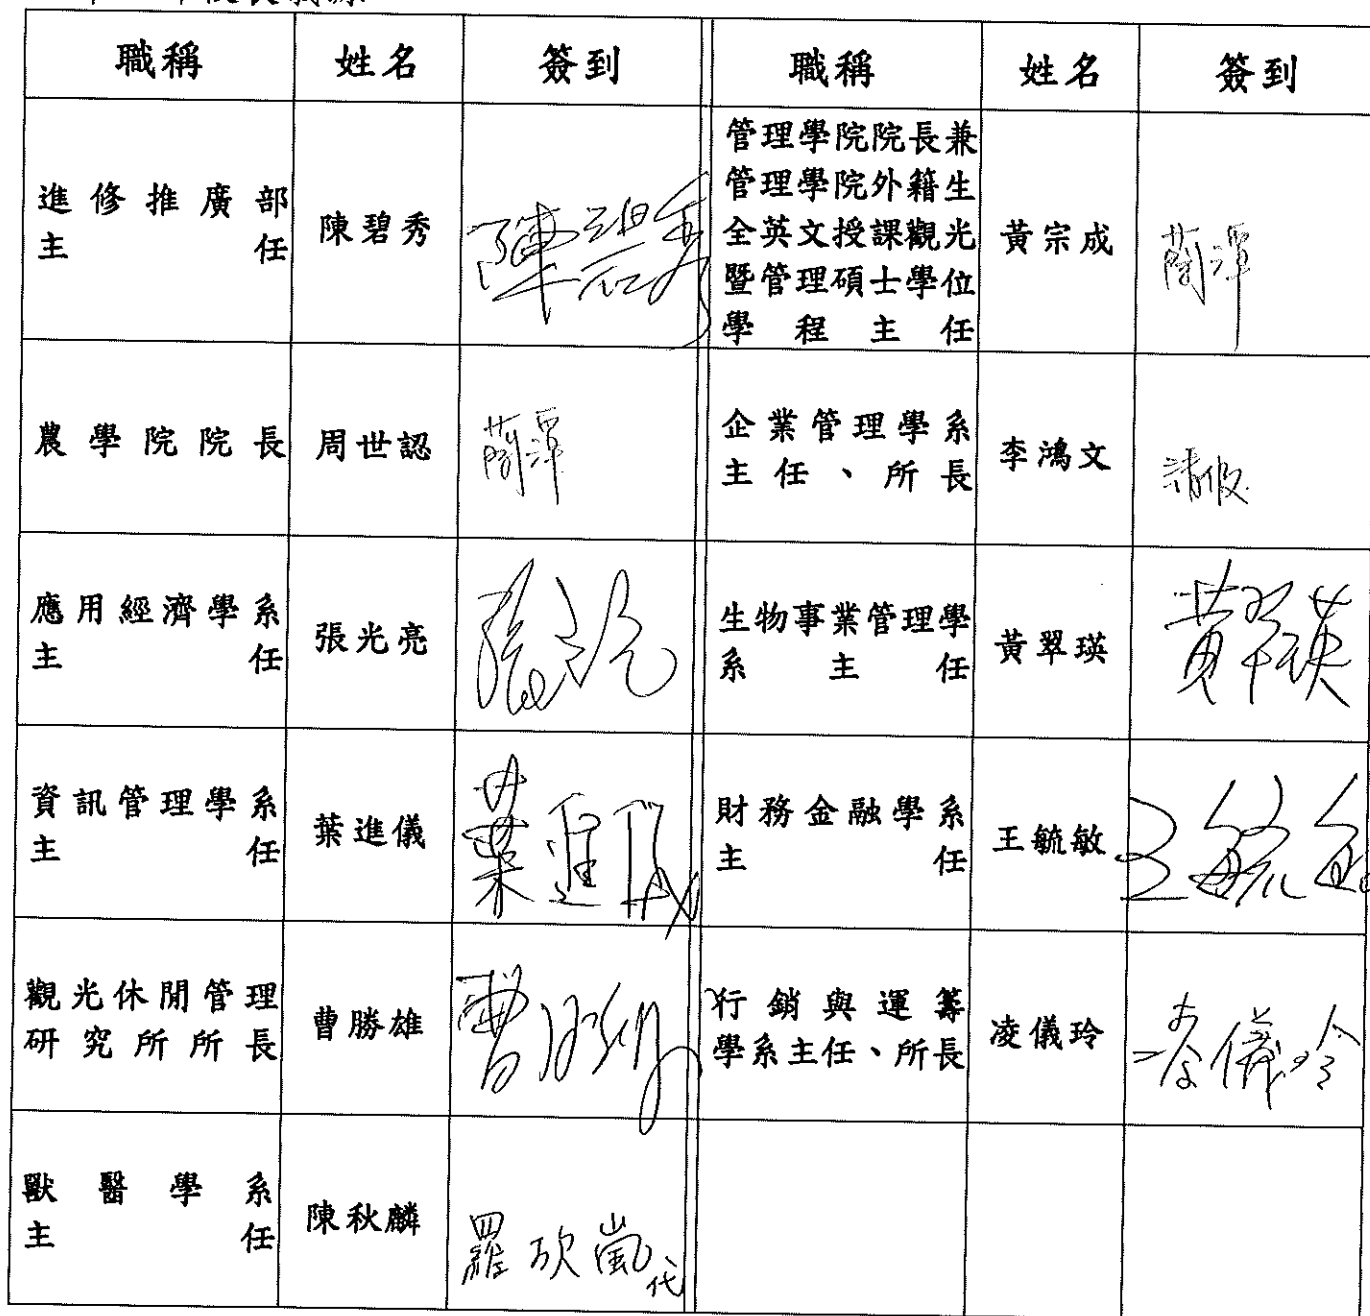 職稱 姓名 簽到 職稱 姓名 簽到
進修推廣部
主任
陳碧秀
陳碧秀
管理學院院長兼
管理學院外籍生
全英文授課觀光
暨管理碩士學位
學程主任
黃宗成
蘭潭
農學院院長
周世認
蘭潭
企業管理學系
主任、所長
李鴻文
請假
應用經濟學系
主任
張光亮
生物事業管理學
系主任
黃翠瑛
黃翠瑛
資訊管理學系
主任
葉進儀
葉進儀
財務金融學系
主任
王毓敏
王毓敏
觀光休閒管理
研究所所長
曹勝雄
曹勝雄
行銷與運籌
學系主任、所長
凌儀玲
凌儀玲
獸醫學系
主任
陳秋麟
羅欣嵐代